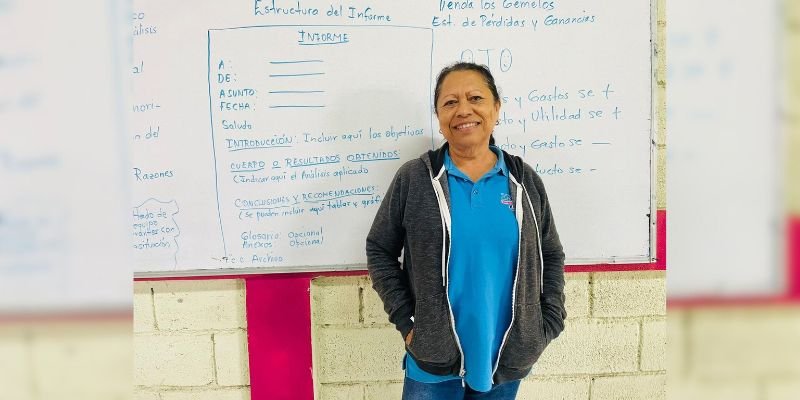 Estructura del Informe
INFORME
A:
DE:
ASUNTO:
FECHA:
Saludo
INTRODUCCIÓN: Incluir aquí los objetivos
CUERPO O RESULTADOS OBTENIDOS:
(Indicar aquí el Análisis aplicado
CONCLUSIONES Y RECOMENDACIONES:
(Se pueden incluir aquí tablas y gráf
Glosario: Opcional
Anexos: Opcional
c.c Archivo
Tienda los Gemelos
Est. de Pérdidas y Ganancias
OJO
s y Gastos se +
sto y Utilidad se +
to y Gasto se —
ueto se -
co
álisis
al
nori-
on del
Razones
ltado de
equipo
rantes con
osifución